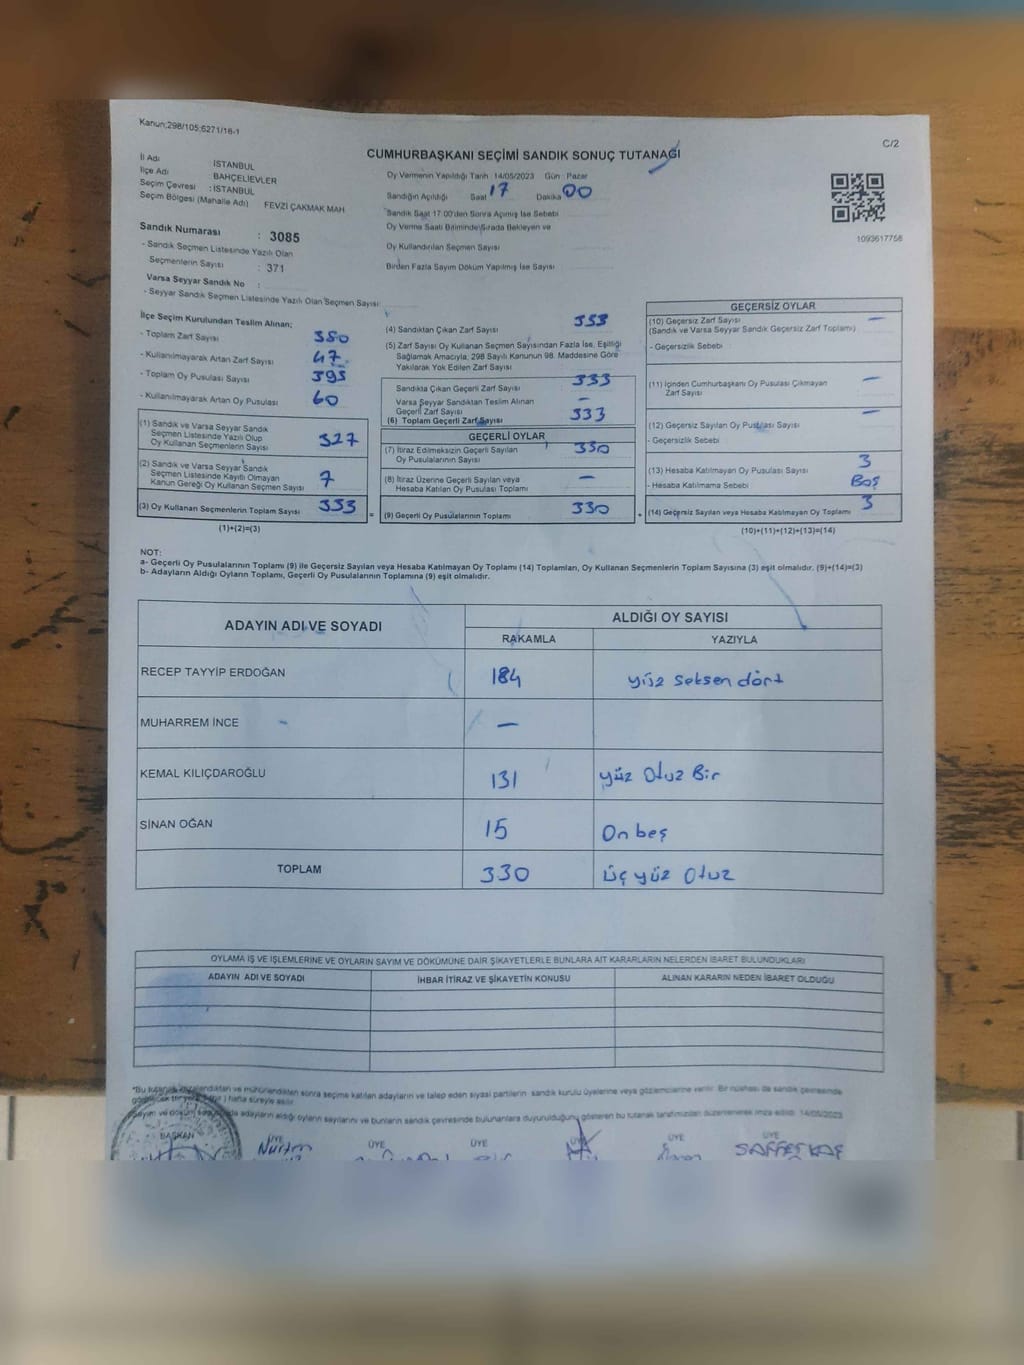 Kanun:298/105;6271/16-1
C/2
CUMHURBAŞKANI SEÇİMİ SANDIK SONUÇ TUTANAĞI
İl Adı İSTANBUL
İlçe Adı BAHÇELİEVLER
Seçim Çevresi : İSTANBUL
Seçim Bölgesi (Mahalle Adı) FEVZİ ÇAKMAK MAH
Oy Vermenin Yapıldığı Tarih 14/05/2023 Gün Pazar
Sandığın Açıldığı Saat 17 Dakika 00
Sandık Saat 17:00'den Sonra Açılmış İse Sebebi
Oy Verme Saati Bitiminde Sırada Bekleyen ve
Oy Kullandırılan Seçmen Sayısı
Birden Fazla Sayım Döküm Yapılmış İse Sayısı
1093617758
Sandık Numarası : 3085
- Sandık Seçmen Listesinde Yazılı Olan
Seçmenlerin Sayısı : 371
Varsa Seyyar Sandık No :
- Seyyar Sandık Seçmen Listesinde Yazılı Olan Seçmen Sayısı:
İlçe Seçim Kurulundan Teslim Alınan;
- Toplam Zarf Sayısı 380
- Kullanılmayarak Artan Zarf Sayısı 47
- Toplam Oy Pusulası Sayısı 395
- Kullanılmayarak Artan Oy Pusulası 60
(1) Sandık ve Varsa Seyyar Sandık
Seçmen Listesinde Yazılı Olup
Oy Kullanan Seçmenlerin Sayısı 327
(2) Sandık ve Varsa Seyyar Sandık
Seçmen Listesinde Kayıtlı Olmayan
Kanun Gereği Oy Kullanan Seçmen Sayısı 7
(3) Oy Kullanan Seçmenlerin Toplam Sayısı 333
(1)+(2)=(3)
(4) Sandıktan Çıkan Zarf Sayısı 333
(5) Zarf Sayısı Oy Kullanan Seçmen Sayısından Fazla İse, Eşitliği
Sağlamak Amacıyla, 298 Sayılı Kanunun 98. Maddesine Göre
Yakılarak Yok Edilen Zarf Sayısı
Sandıkta Çıkan Geçerli Zarf Sayısı 333
Varsa Seyyar Sandıktan Teslim Alınan
Geçerli Zarf Sayısı –
(6) Toplam Geçerli Zarf Sayısı 333
GEÇERLİ OYLAR
(7) İtiraz Edilmeksizin Geçerli Sayılan
Oy Pusulalarının Sayısı 330
(8) İtiraz Üzerine Geçerli Sayılan veya
Hesaba Katılan Oy Pusulası Toplamı –
= (9) Geçerli Oy Pusulalarının Toplamı 330 +
GEÇERSİZ OYLAR
(10) Geçersiz Zarf Sayısı –
(Sandık ve Varsa Seyyar Sandık Geçersiz Zarf Toplamı)
- Geçersizlik Sebebi
(11) İçinden Cumhurbaşkanı Oy Pusulası Çıkmayan
Zarf Sayısı –
(12) Geçersiz Sayılan Oy Pusulası Sayısı –
- Geçersizlik Sebebi
(13) Hesaba Katılmayan Oy Pusulası Sayısı 3
- Hesaba Katılmama Sebebi Boş
(14) Geçersiz Sayılan veya Hesaba Katılmayan Oy Toplamı 3
(10)+(11)+(12)+(13)=(14)
NOT:
a- Geçerli Oy Pusulalarının Toplamı (9) ile Geçersiz Sayılan veya Hesaba Katılmayan Oy Toplamı (14) Toplamları, Oy Kullanan Seçmenlerin Toplam Sayısına (3) eşit olmalıdır. (9)+(14)=(3)
b- Adayların Aldığı Oyların Toplamı, Geçerli Oy Pusulalarının Toplamına (9) eşit olmalıdır.
ADAYIN ADI VE SOYADI ALDIĞI OY SAYISI
RAKAMLA YAZIYLA
RECEP TAYYİP ERDOĞAN 184 yüz seksen dört
MUHARREM İNCE –
KEMAL KILIÇDAROĞLU 131 yüz otuz Bir
SİNAN OĞAN 15 On beş
TOPLAM 330 üç yüz otuz
OYLAMA İŞ VE İŞLEMLERİNE VE OYLARIN SAYIM VE DÖKÜMÜNE DAİR ŞİKAYETLERLE BUNLARA AİT KARARLARIN NELERDEN İBARET BULUNDUKLARI
ADAYIN ADI VE SOYADI İHBAR İTİRAZ VE ŞİKAYETİN KONUSU ALINAN KARARIN NEDEN İBARET OLDUĞU
*Bu tutanak imzalandıktan ve mühürlendikten sonra seçime katılan adayların ve talep eden siyasi partilerin sandık kurulu üyelerine veya gözlemcilerine verilir. Bir nüshası da sandık çevresinde
hafta süreyle asılır.
adayların aldığı oyların sayılarını ve bunların sandık çevresinde bulunanlara duyurulduğunu gösteren bu tutanak tarafımızdan düzenlenerek imza edildi. 14/05/2023
BAŞKAN ÜYE ÜYE ÜYE ÜYE ÜYE ÜYE